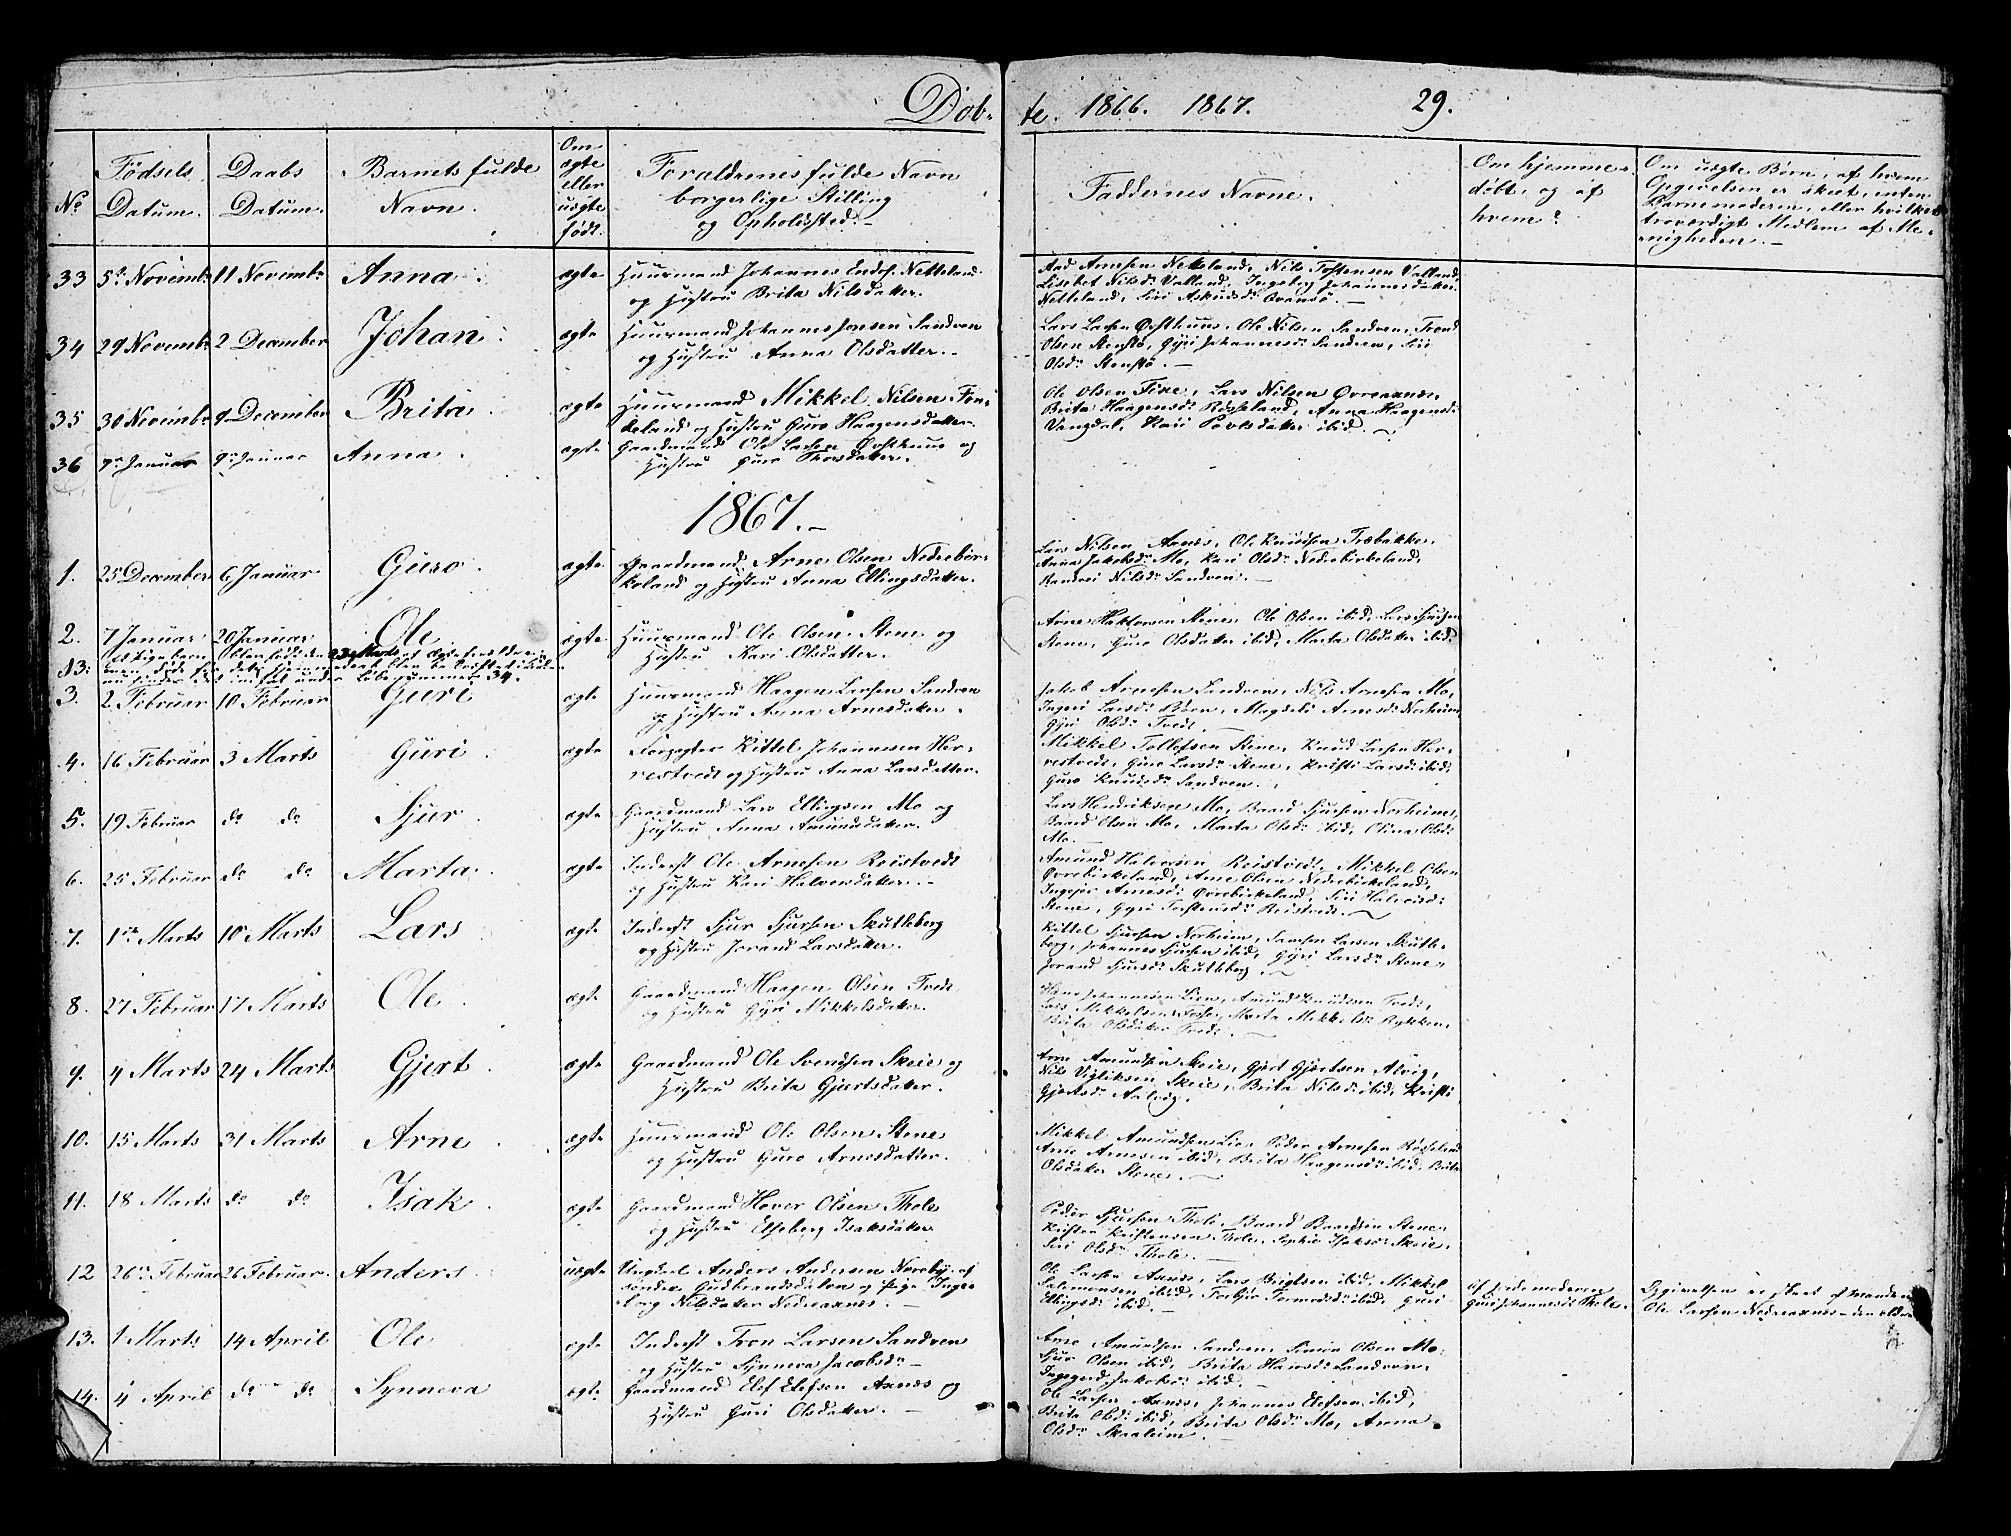 Døb-
te. 1866. 1867. 29.
No
Fødsels
Datum.
Daabs
Datum.
Barnets fulde
Navn.
Om
ægte
eller
uægte
født.
Forældrenes fulde Navn
borgerlige Stilling
og Opholdsted.
Faddernes Navne.
Om hjemme-
døbt, og af
hvem?
Om uægte Børn, af hvem
Opgivelsen er skeet, enten
Barnemoderen, eller hvilket
troværdigt Medlem af Me-
nigheden.
33 5te Novembr 11 Novembr Anna. ægte Huusmand Johannes Endrs. Netteland
og Hustru Brita Nilsdatter.
Aad Arnesen Netteland, Nils Tostensen Valland,
Lisebet Nilsdr Valland, Ingeborg Johannesdatter
Netteland, Siri
34 29 Novembr 2 December Johan. ægte Huusmand Johannes Jonsen Sandven
og Hustru Anna Olsdatter.
Lars Larsen Østhuus, Ole Nilsen Sandven, Trond
Olsen Stensø, Gyri Johannesdr Sandven, Siri
Olsdr Stensø.
35 30 Novembr 9 December Brita. ægte Huusmand Mikkel Nilsen Fon-
keland og Hustru Guro Haagensdatter.
Ole Olsen Fixe, Lars Nilsen Øvreaxnes,
Brita Haagensdr Røsseland, Anna Haagensdr
Vangdal, Kari Povlsdatter ibid.
36 7r Januar 9r Januar Anna. ægte Gaardmand Ole Larsen Østhuus og
Hustru Guro Thorsdatter.
1867.
1. 25 December 6 Januar Guro. ægte Gaardmand Arne Olsen Nedrebir-
keland og Hustru Anna Ellingsdatter.
Lars Nilsen Axnes, Ole Knudsen Træbakke,
Anna Jakobsdr Mo, Kari Olsdr Nedrebirkeland,
Randvei Nilsdr Sandven.
2. 7 Januar 20 Januar Ole ægte Huusmand Ole Olsen Stene og
Hustru Kari Olsdatter.
Arne Steene, Ole Olsen ibid, Lars Sjursen
Stene, Guro Olsdatter ibid, Marta Olsdatter ibid.
13:
3. 2 Februar 10 Februar Guri ægte Huusmand Haagen Larsen Sandven
og Hustru Anna Arnesdatter.
Jakob Arnesen Sandven, Nils Arnesen Mo,
Ingeri Larsdr Børn, Magdeli Arnesdr Norheim,
Gyri Olsdr Tvedt.
4. 16 Februar 3 Marts Guri. ægte Forpagter Kittel Johannesen Her-
restvedt og Hustru Anna Larsdatter.
Mikkel Tollefsen Stene, Knud Larsen Her-
restvedt, Guro Larsdr Stene, Kristi Larsdr ibid,
Guro Knudsdr Sandven.
5. 19 Februar do do Sjur. ægte Gaardmand Lars Ellingsen Mo og
Hustru Anna Amundsdatter.
Lars Hendriksen Mo, Baard Sjursen Norheim,
Baard Olsen Mo, Marta Olsdr ibid, Olina Olsdr
Mo.
6. 25 Februar do do Marta. ægte Inderst Ole Arnesen Reistvedt
og Hustru Kari Halvorsdatter.
Amund Halvorsen Reistvedt, Mikkel Olsen
Øvrebirkeland, Arne Olsen Nedrebirkeland,
Ingeger Arnesdr Øvrebirkeland, Siri Halvorsdr
Stene, Gyri Torstensdr Reistvedt.
7. 1ste Marts 10 Marts Lars. ægte Inderst Sjur Sjursen Skutleberg
og Hustru Jorand Larsdatter.
Kittel Sjursen Norheim, Samson Larsen Skutle-
berg, Johannes Sjursen ibid, Gyri Larsdr Stene,
Jorand Sjursdr Skutleberg.
8. 27 Februar 17 Marts Ole. ægte Gaardmand Haagen Olsen Tvedt
og Hustru Gyri Mikkelsdatter.
Hans Johannesen Lien, Amund Knudsen Tvedt,
Lars Mikkelsen Fosse, Marta Mikkelsdr Rykken,
Brita Olsdatter Tvedt.
9. 4 Marts 24 Marts Gjert. ægte Gaardmand Ole Svendsen Skeie og
Hustru Brita Gjertsdatter.
Arne Amundsen Skeie, Gjert Gjertsen Alvig,
Nils Vigliksen Skeie, Brita Nilsdr ibid, Kristi
Gjertsdr Aalvig.
10. 15 Marts 31 Marts Arne ægte Huusmand Ole Olsen Stene
og Hustru Guro Arnesdatter.
Mikkel Amundsen Lie, Peder Arnesen Røsseland,
Arne Arnesen ibid, Brita Haagensdr ibid, Brita
Olsdatter Stene.
11. 18 Marts do do Isak. ægte Gaardmand Hover Olsen Thole
og Hustru Elseberg Isaksdatter.
Peder Sjursen Thole, Baard Baardsen Stene,
Kristen Kristensen Thole, Sophie Isaksdr Skeie,
Siri Olsdr Thole.
12 26de Februar 26 Februar. Anders. uægte Ungkarl Anders Andersen Noreby af
søndre Gudbrandsdalen og Pige Inge-
borg Nilsdatter Nedreaxnes.
Ole Larsen Axnes, Lars Brigtsen ibid, Mikkel
Salomonsen ibid, Torbjør Tormodsdr ibid, Guri
Ellingsdr ibid.
af Jordemoderen
Guri Johannesdr Thole.
Opgivelsen er skeet af manden
Ole Larsen Nedreaxnes den eldre
13. 1 Marts 14 April Ole ægte Inderst Tron Larsen Sandven
og Hustru Synneva Jacobsdr
Arne Amundsen Sandven, Olsen Mo,
Sjur Olsen ibid, Brita Hansdr Sandven,
Ingegerd Jakobsdr ibid.
14. 4 April do do Synneva ægte Gaardmand Elef Elefsen Axnes og
Hustru Guri Olsdatter.
Ole Larsen Axnes, Johannes Elefsen ibid,
Brita Olsdr ibid, Brita Olsdr Mo, Anna
Olsdr Skaaheim.